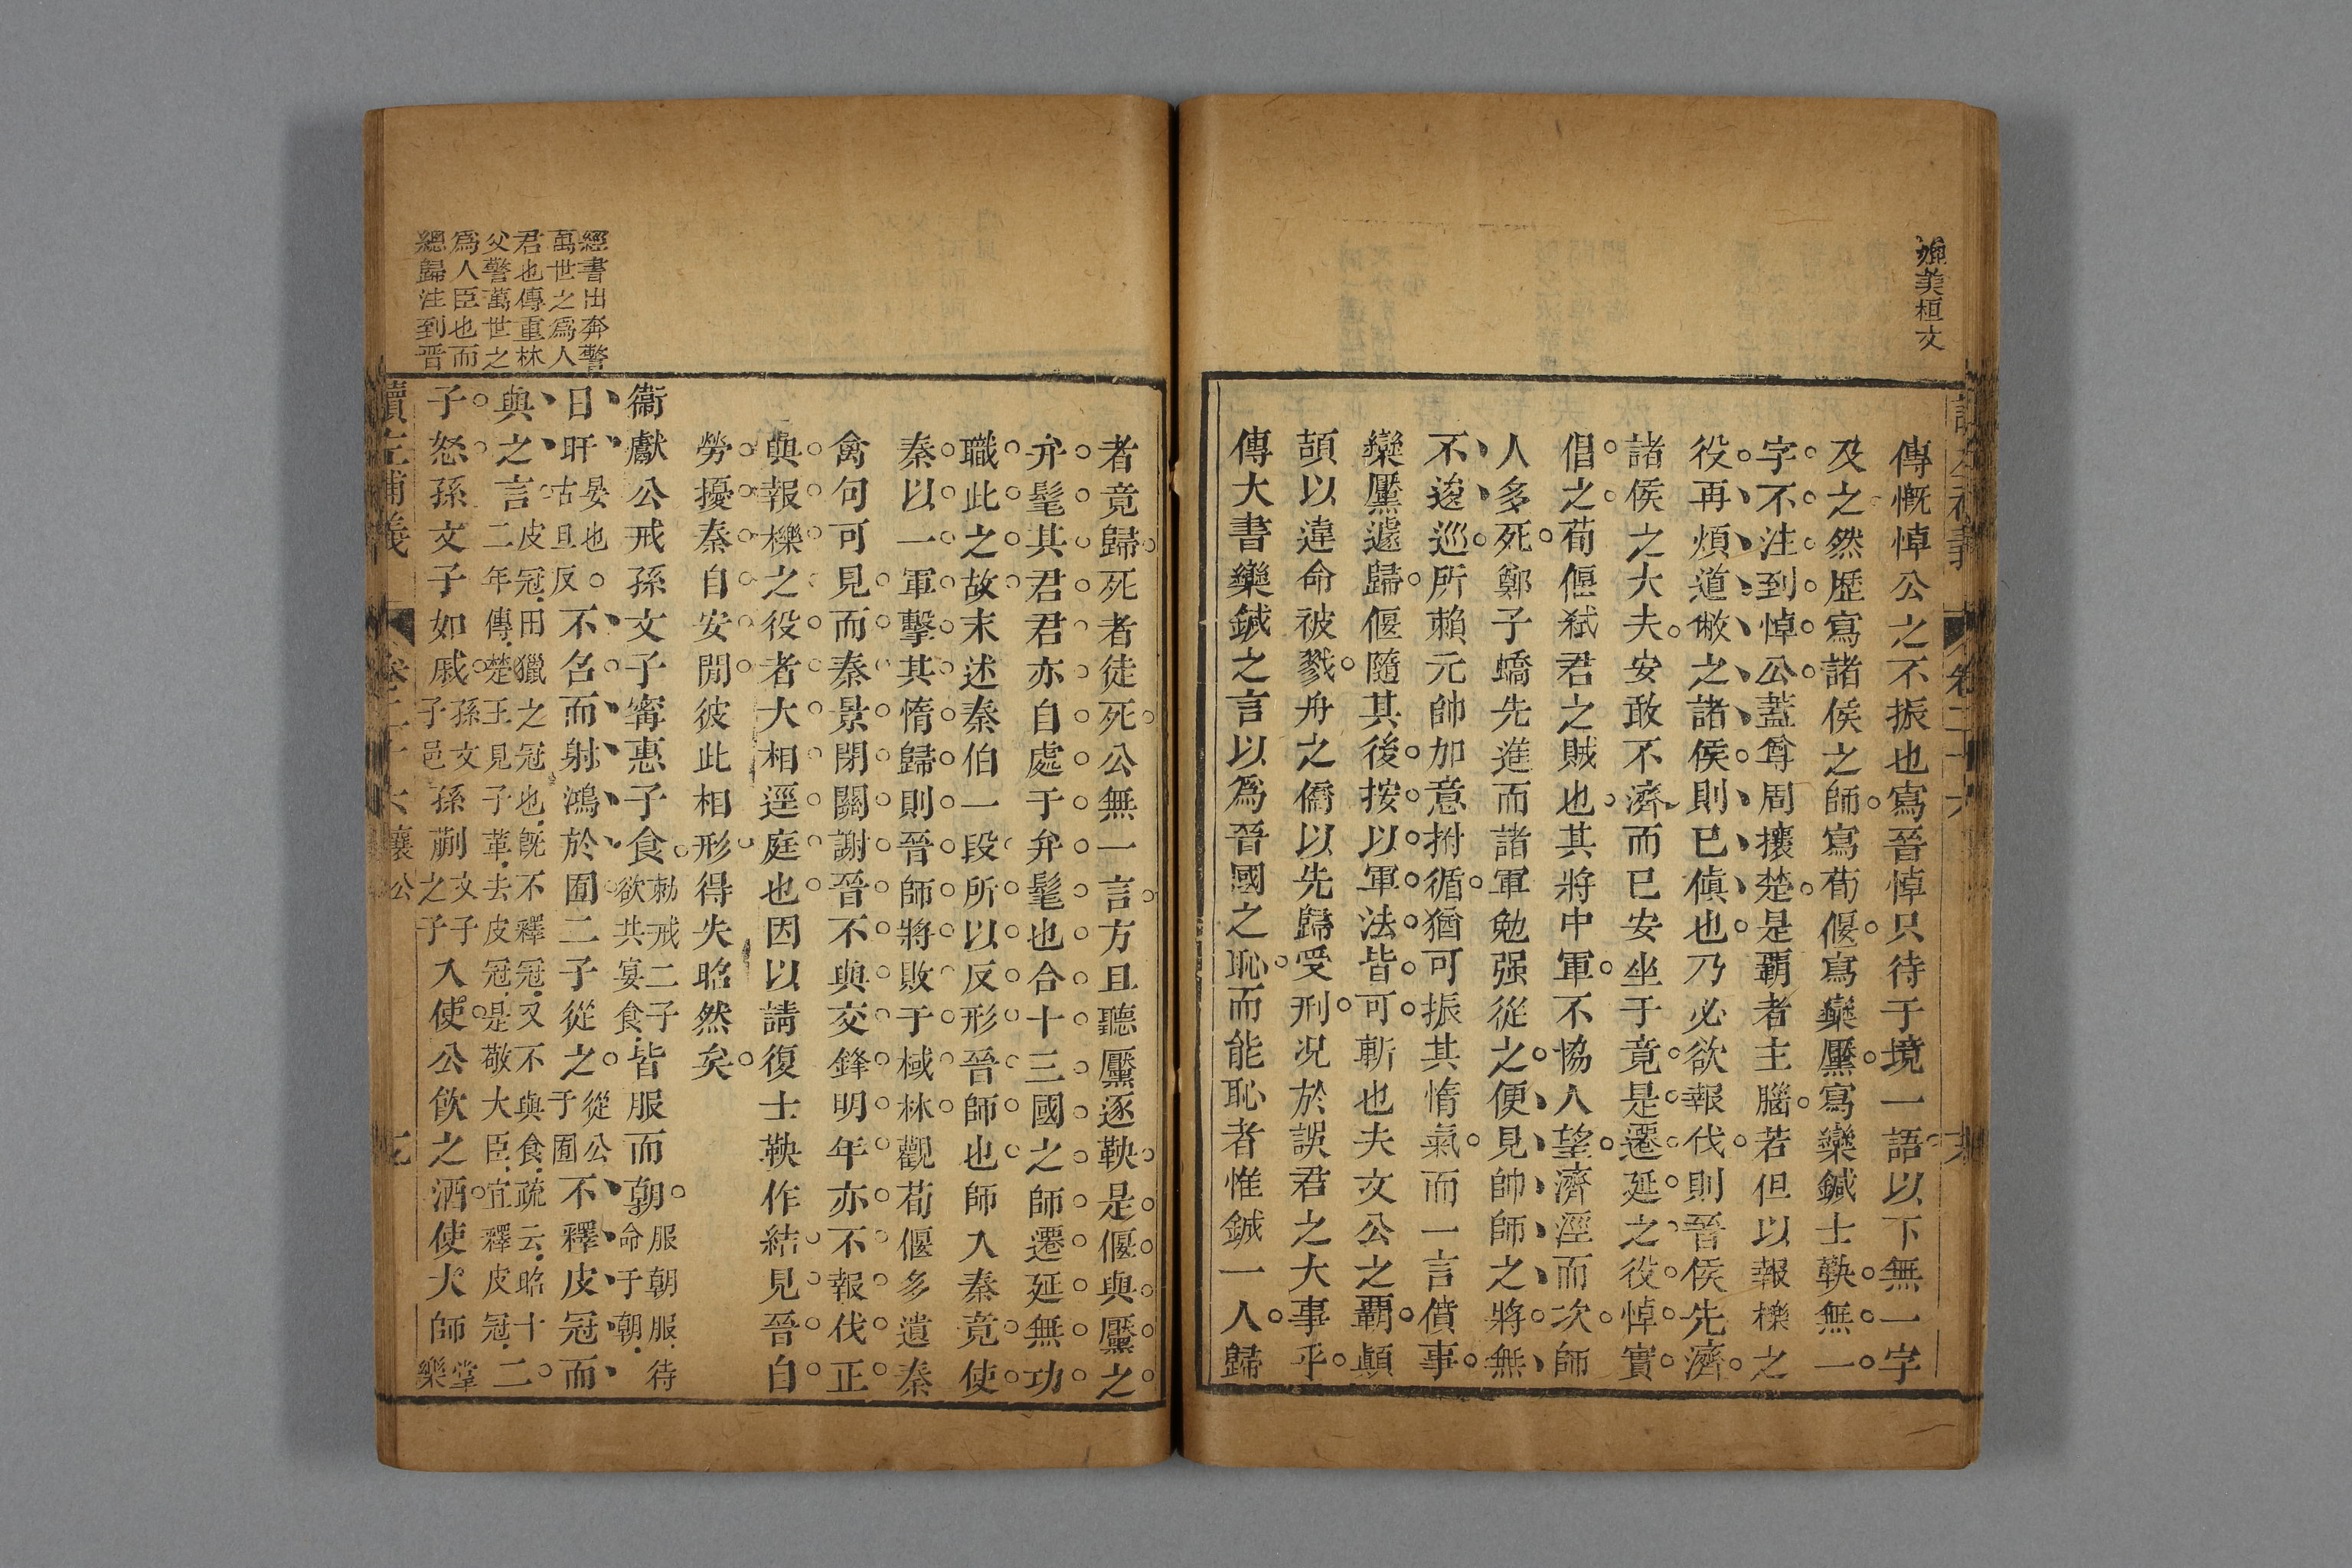 媲美桓文
傳慨悼公之不振也寫晉悼只待于境一語以下無一字
及之然歷寫諸侯之師寫荀偃寫欒黶寫欒鍼士鞅無一
字不注到悼公蓋尊周攘楚是覇者主腦若但以報櫟之
役再煩道敝之諸侯則已慎也乃必欲報伐則晉侯先濟
諸侯之大夫安敢不濟而已安坐于竟是遷延之役悼實
倡之荀偃弒君之賊也其將中軍不協人望濟涇而次師
人多死鄭子蟜先進而諸軍勉强從之便見帥師之將無
不逡巡所賴元帥加意拊循猶可振其惰氣而一言僨事
欒黶遽歸偃隨其後按以軍法皆可斬也夫文公之覇顛
頡以違命被戮舟之僑以先歸受刑况於誤君之大事乎
傳大書欒鍼之言以爲晉國之恥而能恥者惟鍼一人歸
者竟歸死者徒死公無一言方且聽黶逐鞅是偃與黶之
弁髦其君君亦自處于弁髦也合十三國之師遷延無功
職此之故末述秦伯一段所以反形晉師也師入秦竟使
秦以一軍擊其惰歸則晉師將敗于棫林觀荀偃多遺秦
禽句可見而秦景閉關謝晉不與交鋒明年亦不報伐正
與報櫟之役者大相逕庭也因以請復士鞅作結見晉自
勞擾秦自安閒彼此相形得失昭然矣
經書出奔警
萬世之爲人
君也傳重林
父警萬世之
爲人臣也而
總歸注到晋
衞獻公戒孫文子寗惠子食勑戒二子欲共宴食皆服而朝服朝服待命于朝
日旰晏也古旦反不召而射鴻於囿二子從之從公于囿不釋皮冠而
與之言皮冠田獵之冠也旣不釋冠又不與食疏云昭十二年傳楚王見子革去皮冠是敬大臣宜釋皮冠二
子怒孫文子如戚孫文子邑孫蒯文子之子入使公飮之酒使大師樂堂
讀左補義
卷二十六 襄公